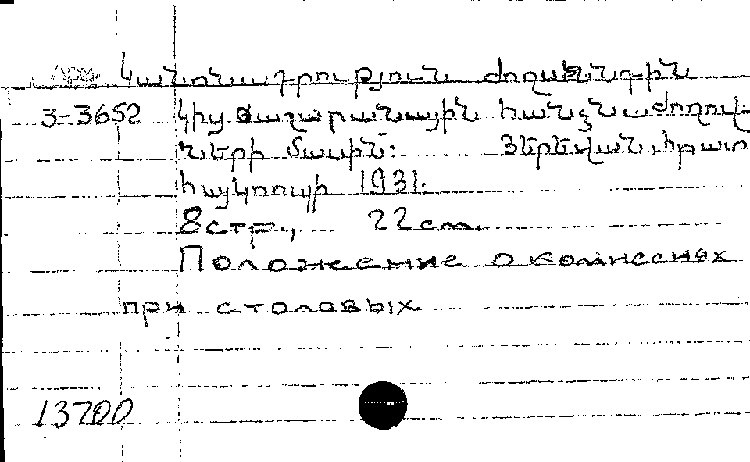 Կանոնադրություն ժողսննդին
3-3652 կից ճաշարանային հանձնաժողով-
ների մասին: Յերեվան, հրատ
հայկոոպի 1931.
8 стр., 22 см.
Положение о комиссиях
при столовых
13700